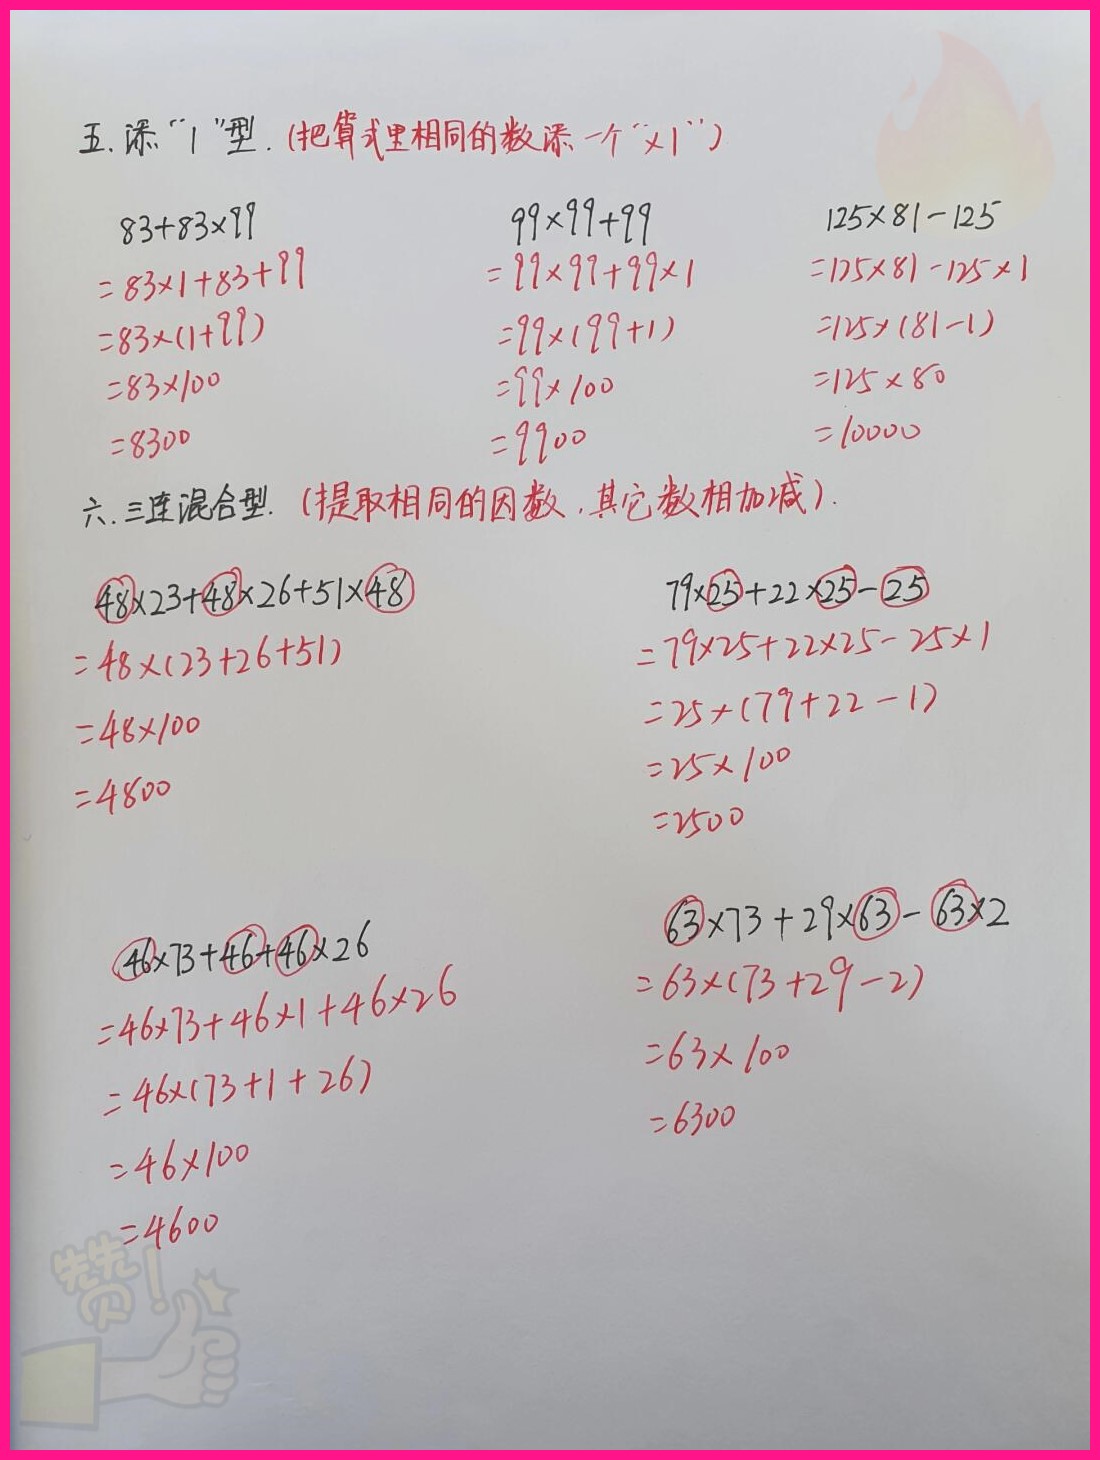 五.添“1”型.(把算式里相同的数添一个“×1”)
83+83×99
=83×1+83+99
=83×(1+99)
=83×100
=8300
99×99+99
=99×99+99×1
=99×(99+1)
=99×100
=9900
125×81-125
=125×81-125×1
=125×(81-1)
=125×80
=10000
六.三连混合型.(提取相同的因数,其它数相加减).
48×23+48×26+51×48
=48×(23+26+51)
=48×100
=4800
79×25+22×25-25
=79×25+22×25-25×1
=25×(79+22-1)
=25×100
=2500
46×73+46+46×26
=46×73+46×1+46×26
=46×(73+1+26)
=46×100
=4600
63×73+29×63-63×2
=63×(73+29-2)
=63×100
=6300
赞!